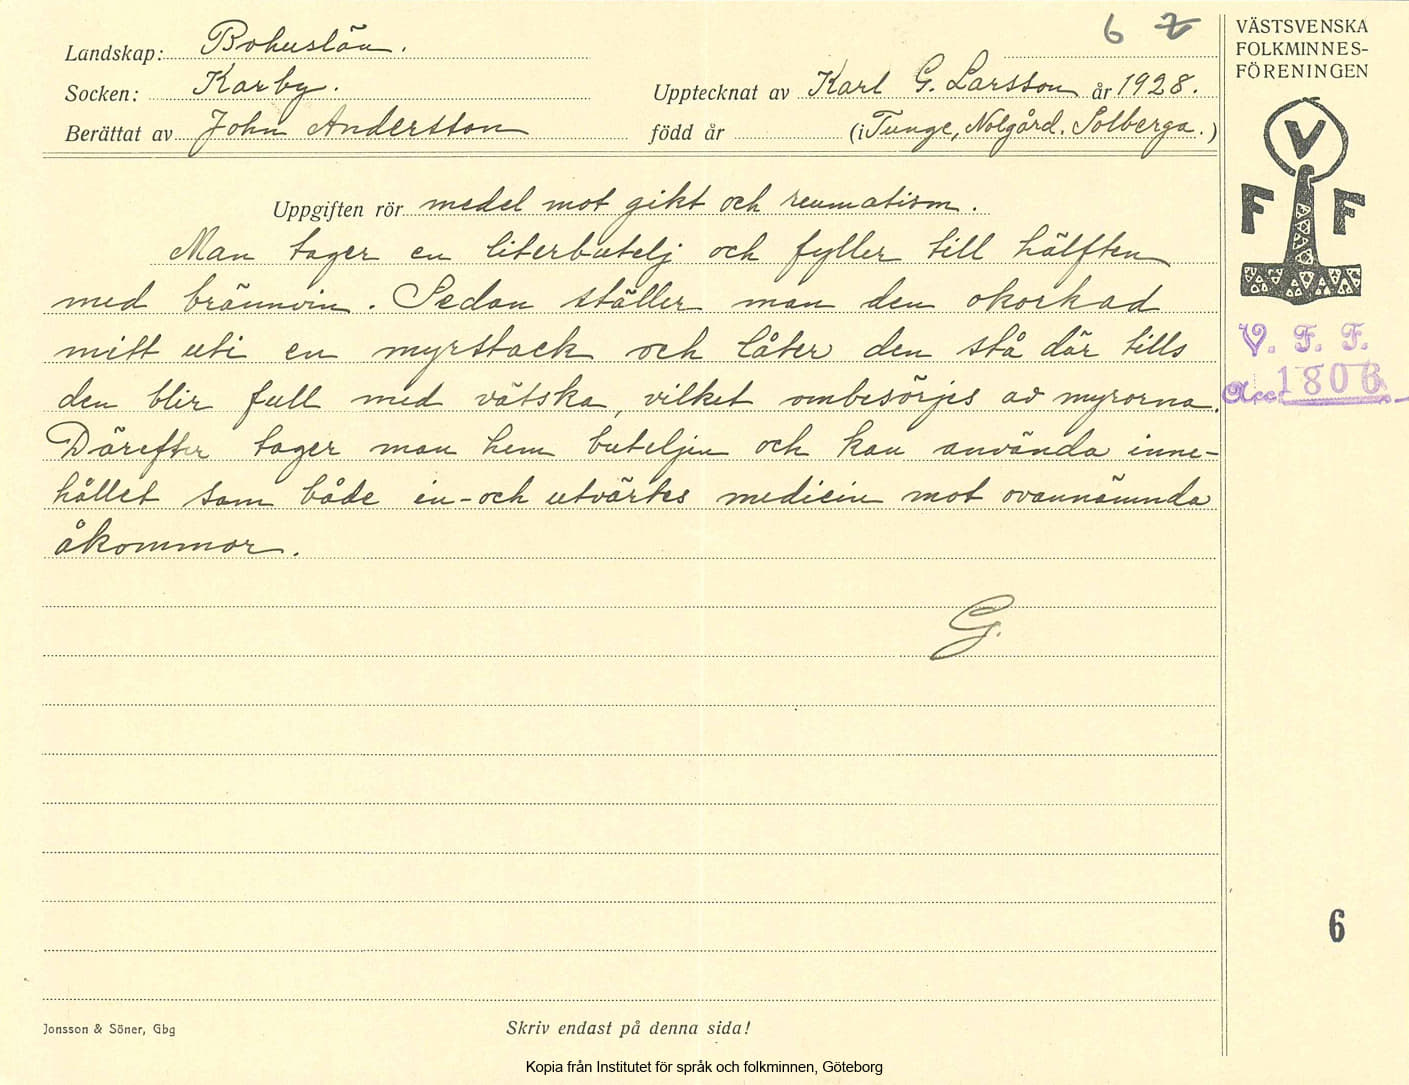 6 2
Landskap: Bohuslän.
Socken: Karby.
Upptecknat av Karl G. Larsson år 1928.
Berättat av John Andersson
född år (i Tunge, Nolgård. Solberga.)
VÄSTSVENSKA
FOLKMINNES-
FÖRENINGEN
V
F F
V. F. F.
Acc. 1806
Uppgiften rör medel mot gikt och reumatism.
Man tager en literbutelj och fyller till hälften
med brännvin. Sedan ställer man den okorkad
mitt uti en myrstack och låter den stå där tills
den blir full med vätska, vilket ombesörjes av myrorna.
Därefter tager man hem buteljen och kan använda inne-
hållet som både in- och utvärtes medicin mot ovannämnda
åkommor.
G.
6
Jonsson & Söner, Gbg
Skriv endast på denna sida!
Kopia från Institutet för språk och folkminnen, Göteborg